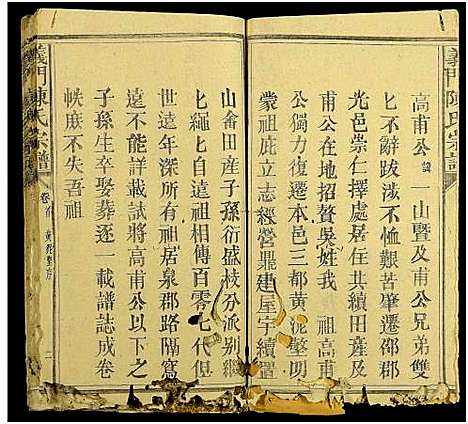 義門陳氏宗譜
高甫公諱一山暨及甫公兄弟雙
匕不辭跋涉不恤艱苦肇遷邵郡
光邑崇仁擇處居住共續田産及
甫公在地招贅吳姓我 祖高甫
公獨力復遷本邑三都黄泥墼明
蒙祖庇立志經營鼎建屋宇續置
山畲田産子孫衍盛枝分派别繩
匕繩匕自遠相傳百零七代但
世遠年深所有祖居泉郡路隔寫
遠不能詳載試將高甫公以下之
子孫生卒娶葬逐一載譜誌成卷
帙庶不失吾祖
義門陳氏宗譜
卷首 黄泥墼序